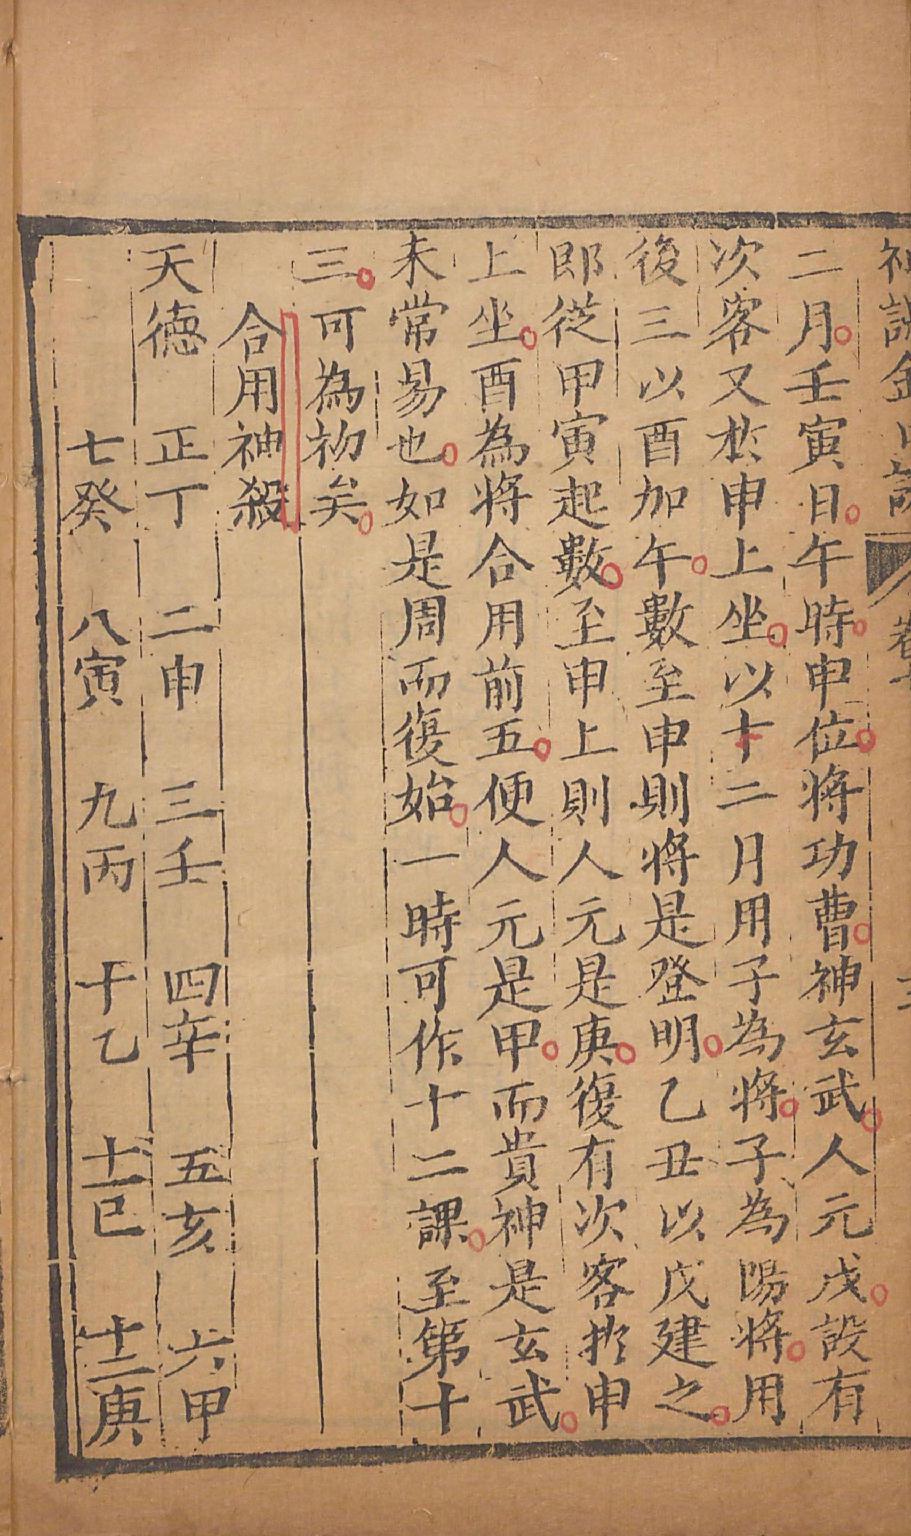 神課金口訣
二月壬寅日午時申位將功曹神玄武人元戊設有
次客又於申上坐以十二月用子為將子為陽將用
後三以酉加午數至申則將是登明乙丑以戊建之
郎從甲寅起數至申上則人元是庚復有次客扵申
上坐酉為將合用前五便人元是甲而貴神是玄武
未常易也如是周而復始一時可作十二課至第十
三可為初矣
合用神殺
天德 正丁 二申 三壬 四辛 五亥 六甲
七癸 八寅 九丙 十乙 十一巳 十二庚